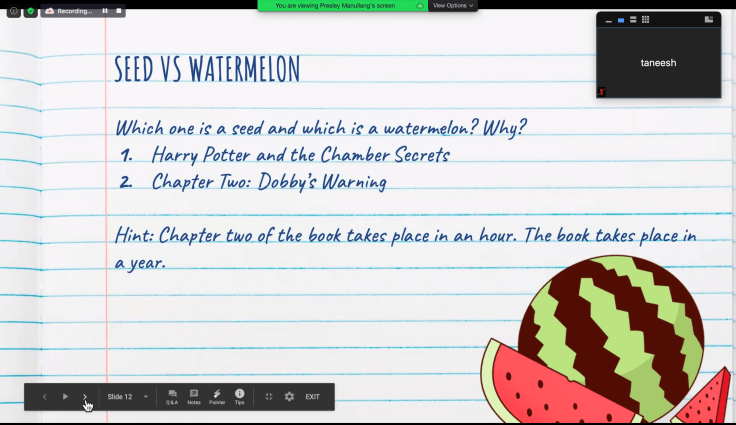 Recording...
You are viewing Presley Manullang's screen
View Options
taneesh
SEED VS WATERMELON
Which one is a seed and which is a watermelon? Why?
1. Harry Potter and the Chamber Secrets
2. Chapter Two: Dobby's Warning
Hint: Chapter two of the book takes place in an hour. The book takes place in
a year.
Slide 12
Q&A
Notes
Pointer
Tips
EXIT